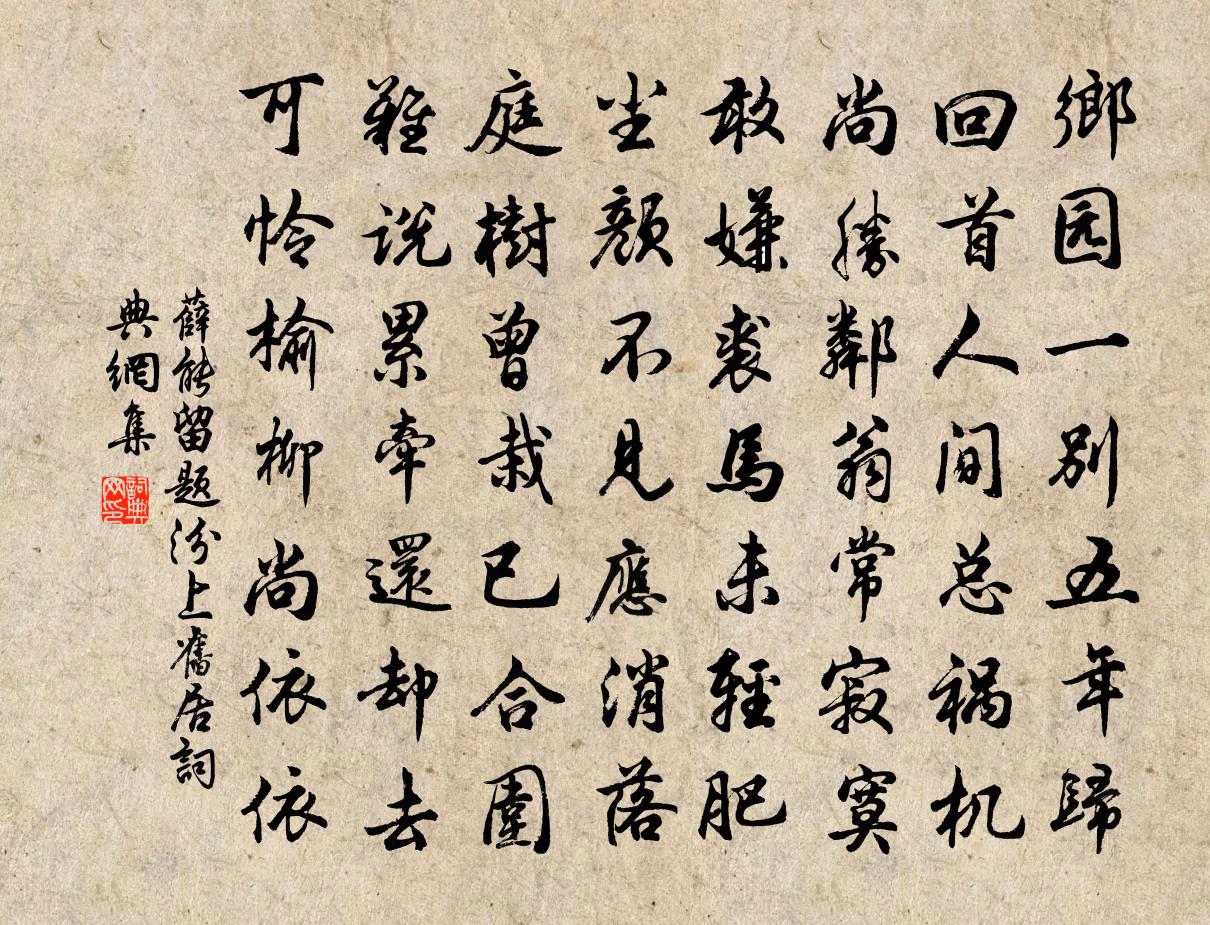 鄉园一别五年歸
回首人间总祸机
尚勝鄰翁常寂寞
敢嫌裘馬未輕肥
尘顏不見應消落
庭樹曾栽已合圍
難说累牽還却去
可怜榆柳尚依依
薛能留題汾上舊居詞
典網集
詞典网印